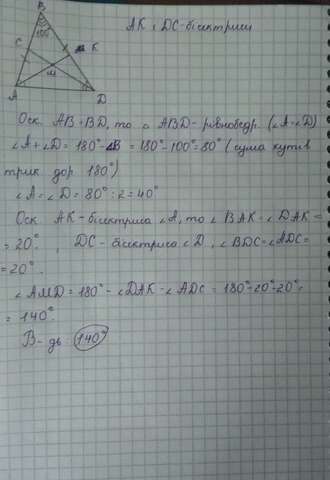 B
100°
C
K
M
A
D
AK і DC - бісектриси
Оск. AB=BD, то △ ABD - рівнобедр. (∠A=∠D)
∠A+∠D = 180°-∠B = 180°-100°=80° (сума кутів
трик дор 180°)
∠A=∠D = 80°:2=40°
Оск. AK - бісектриса ∠A, то ∠BAK=∠DAK=
=20°, DC - бісектриса ∠D, ∠BDC=∠ADC=
=20°.
∠AMD=180°-∠DAK-∠ADC = 180°-20°-20°=
= 140°.
В-дь: 140°